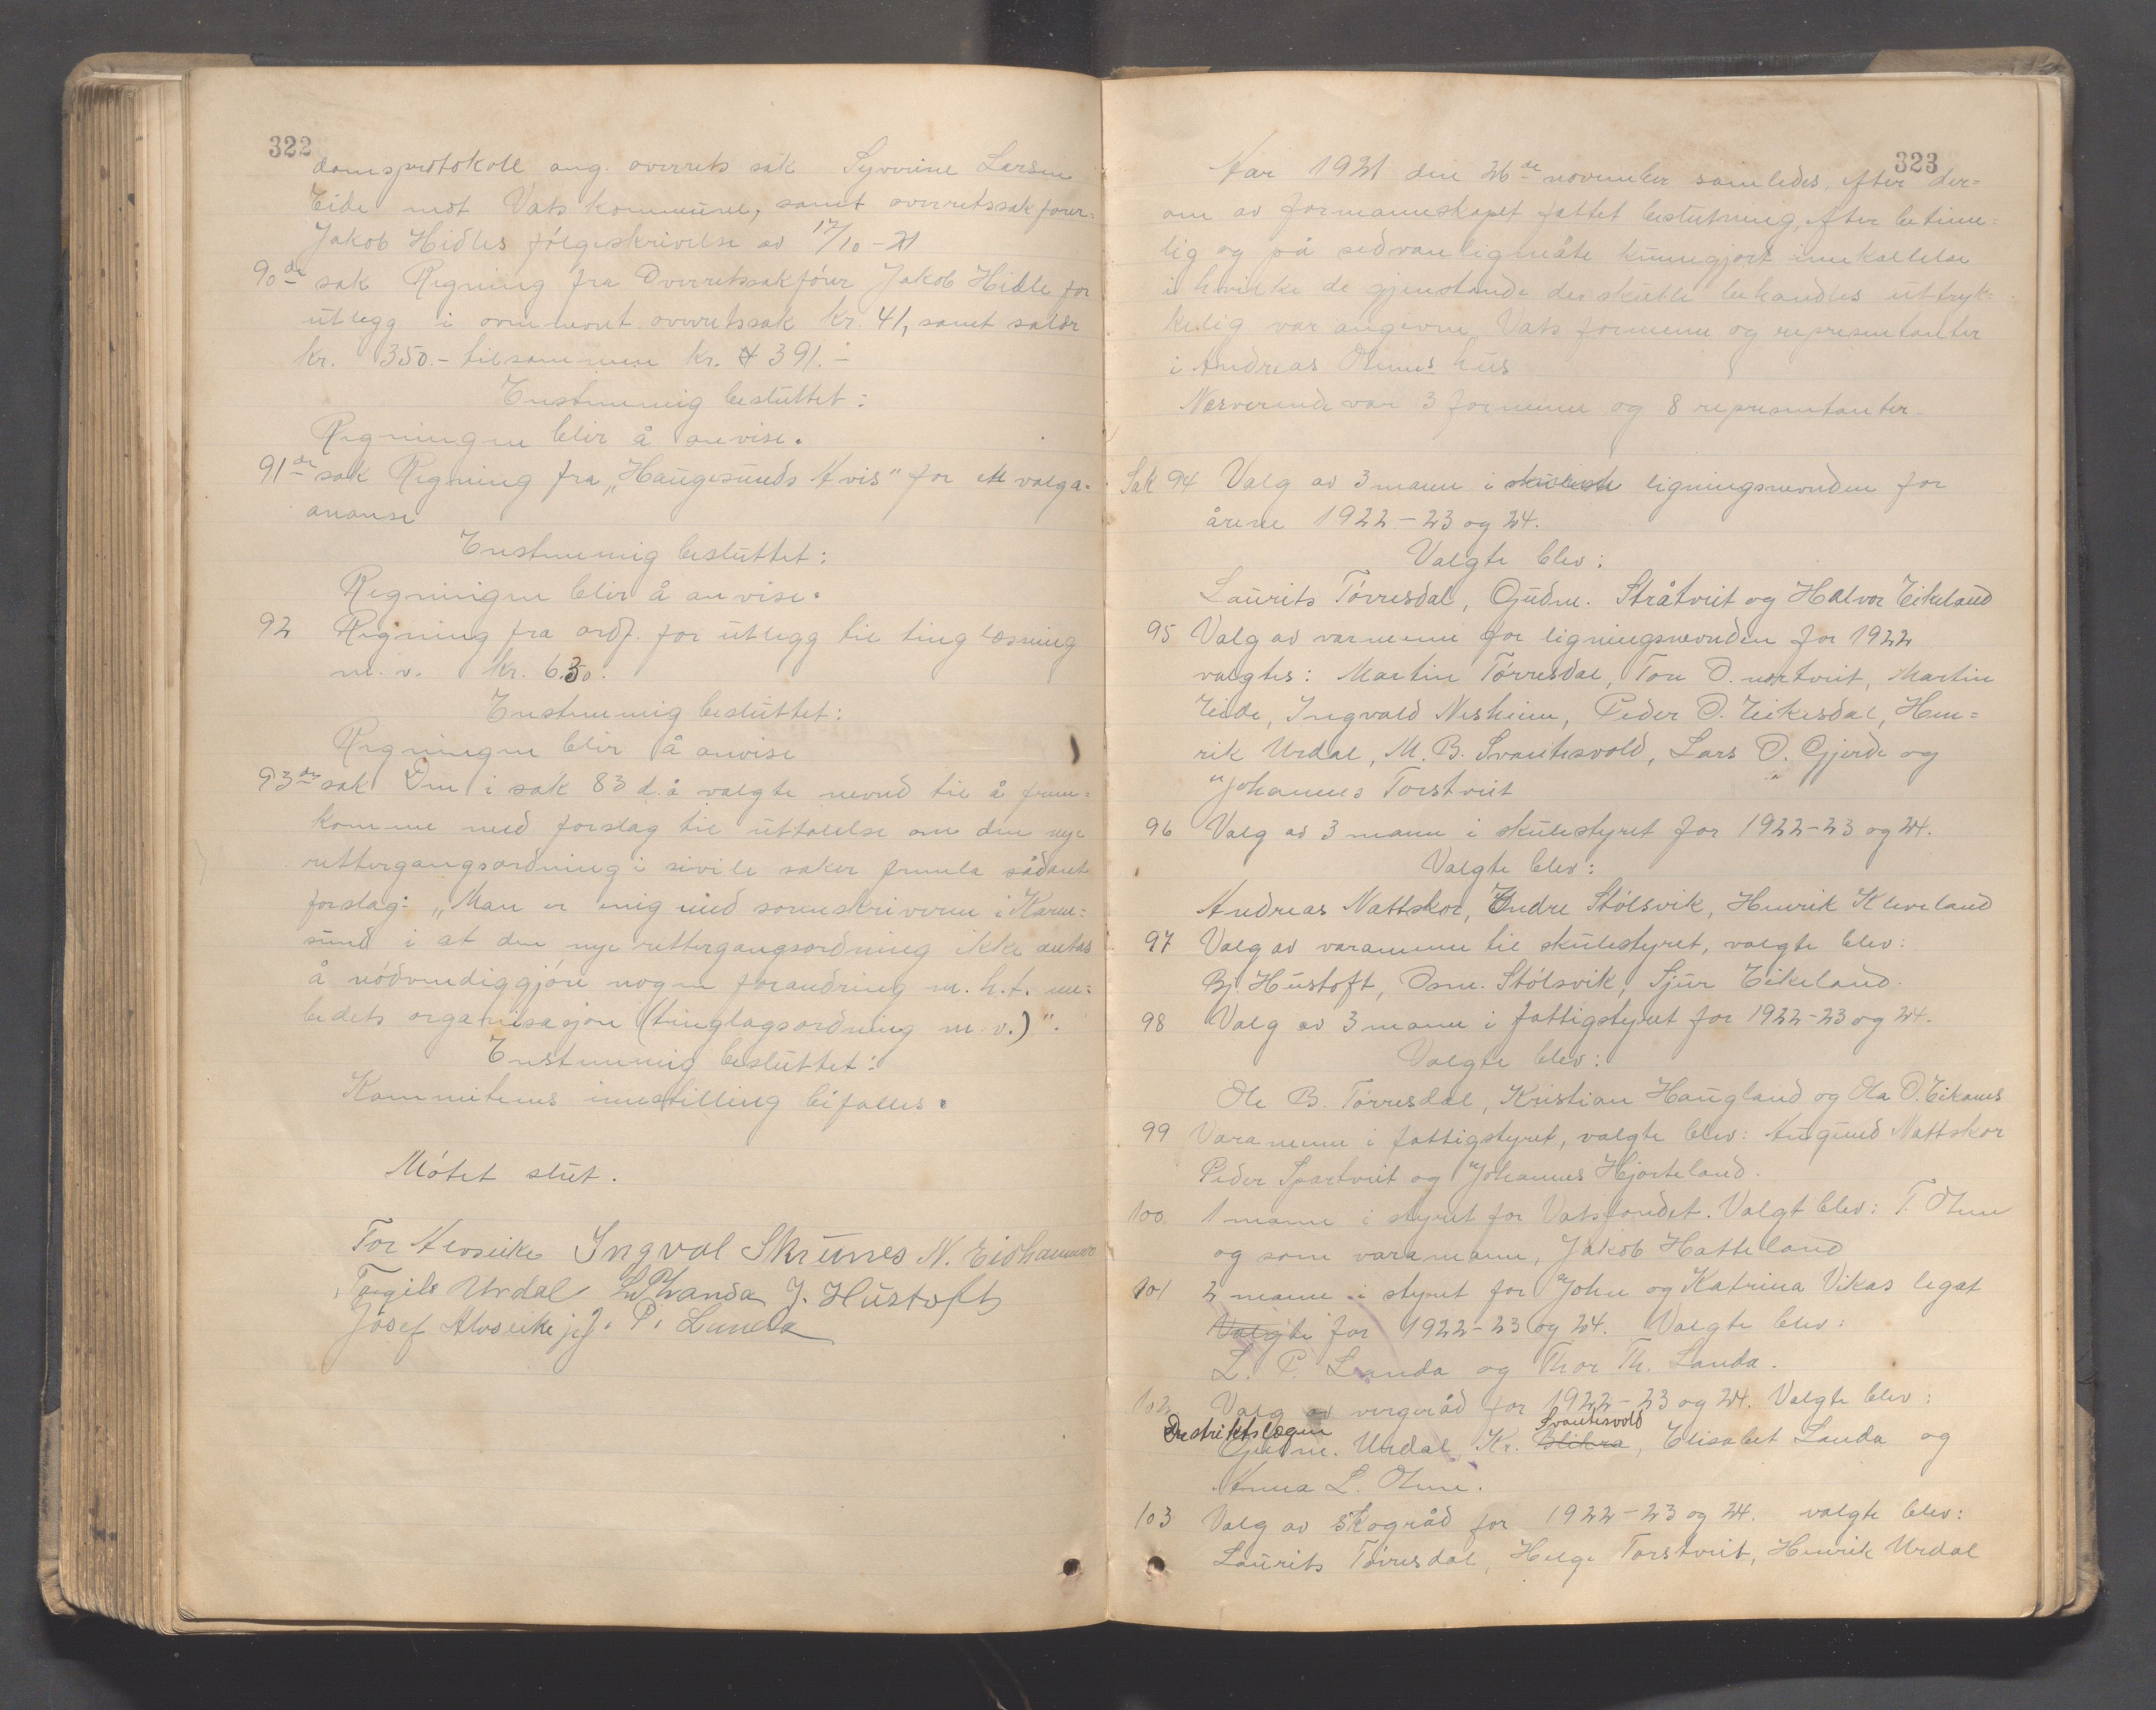 322
domsprotokoll ang. overrets sak Syverine Larsen
Eide mot Vats kommune, samt overretssakförer
Jakob Hidles fölgeskrivelse av 17/10-21
90de sak Regning fra Overretssakförer Jakob Hidle for
utlegg i ovennevnt overretssak kr. 41, samt salær
kr. 350.- tilsammen kr. 391.-
Enstemmig besluttet:
Regningen blir å anvise.
91de sak Regning fra "Haugesunds Avis" for et valga-
ananse
Enstemmig besluttet:
Regningen blir å anvise.
92 Regning fra ordf. for utlegg til tinglæsning
m. v. kr. 6.30.
Enstemmig besluttet:
Regningen blir å anvise
93de sak Den i sak 83 d.å valgte nevnd til å frem-
komme med forslag til uttalelse om den nye
rettergangsordning i sivile saker fremla sådant
forslag: "Man er enig med sorenskriveren i Karm-
sund i at den nye rettergangsordning ikke antas
å nödvendiggjöre nogen forandring m.h.t. em-
bedets organisasjon (tinglagsordning m.v.)".
Enstemmig besluttet:
Kommiteens innstilling bifalles.
Mötet slut.
Tor Alvseike Ingval Skrunes N. Eidhammer
Torgils Urdal L P Landa J. Hustoft
Josef Alvseike J. P. Landa
323
Aar 1921 den 26de november samledes, efter der-
om av formannskapet fattet beslutning, efter betime-
lig og på sedvanligmåte kunngjort innkallelse
i hvilke de gjenstande der skulle behandles uttryk-
kelig var angivne, Vats formenn og representanter
i Andreas Ølmes hus
Nærverende var 3 formenn og 8 representanter.
Sak 94 Valg av 3 mann i ligningsnevnden for
årene 1922-23 og 24.
Valgte blev:
Laurits Törresdal, Gudm. Stråtveit og Halvor Eikeland
95 Valg av varmenn for ligningsnevnden for 1922
valgtes: Martin Törresdal, Tore O. nortveit, Martin
Eide, Ingvald Nesheim, Peder O. Eikesdal, Hen-
rik Urdal, M. B. Svantesvold, Lars O. Gjerde og
Johannes Torstveit
96 Valg av 3 mann i skulestyret for 1922-23 og 24.
Valgte blev:
Andreas Nattskor, Endre Stölsvik, Henrik Kleveland
97 Valg av varamenn til skulestyret, valgte blev:
Bj. Hustoft, Osm. Stölsvik, Sjur Eikeland.
98 Valg av 3 mann i fattigstyret for 1922-23 og 24.
Valgte blev:
Ole B. Törresdal, Kristian Haugland og Ola O. Eikanes
99 Varamenn i fattigstyret, valgte blev: Augund Nattskor
Peder Spartveit og Johannes Hjorteland.
100 1 mann i styret for Vatsfondet. Valgt blev: T. Ølme
og som varamann, Jakob Hatteland
101 2 mann i styret for John og Katrina Vikas legat
Valgte for 1922-23 og 24. Valgte blev:
L. P. Landa og Thor Th. Landa.
102 Valg av vergeråd for 1922-23 og 24. Valgte blev:
Destriktslægen Svantesvold
Gudm. Urdal, Kr. Blikra, Elisabet Landa og
Anna L. Ølme.
103 Valg av skogråd for 1922-23 og 24. valgte blev:
Laurits Törresdal, Helge Torstveit, Henrik Urdal